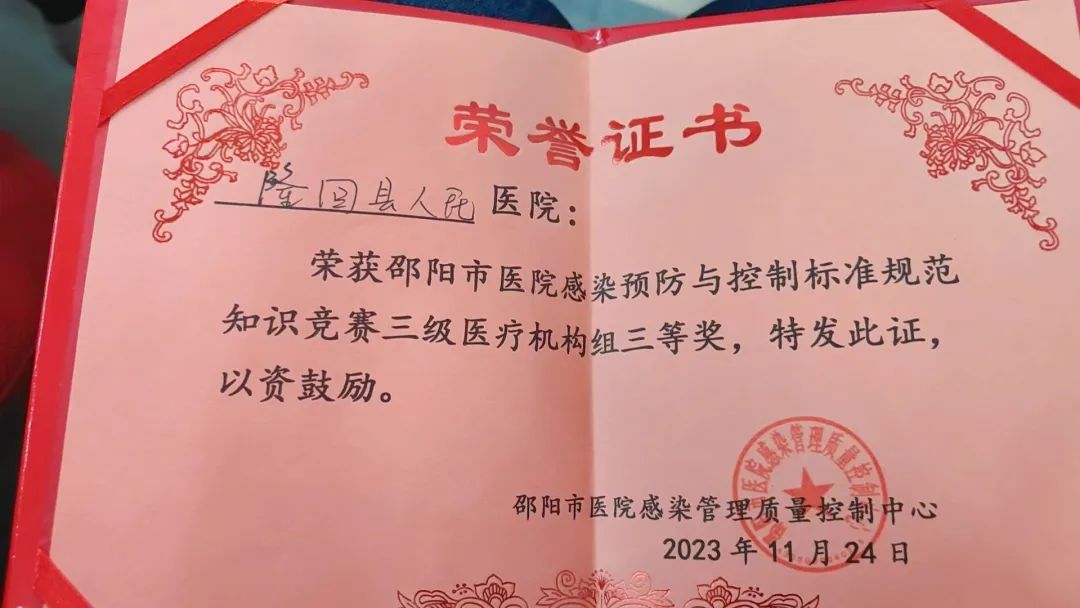 荣誉证书
隆回县人民医院：
荣获邵阳市医院感染预防与控制标准规范
知识竞赛三级医疗机构组三等奖，特发此证，
以资鼓励。
医院感染管理质量控制
邵阳市医院感染管理质量控制中心
2023年11月24日